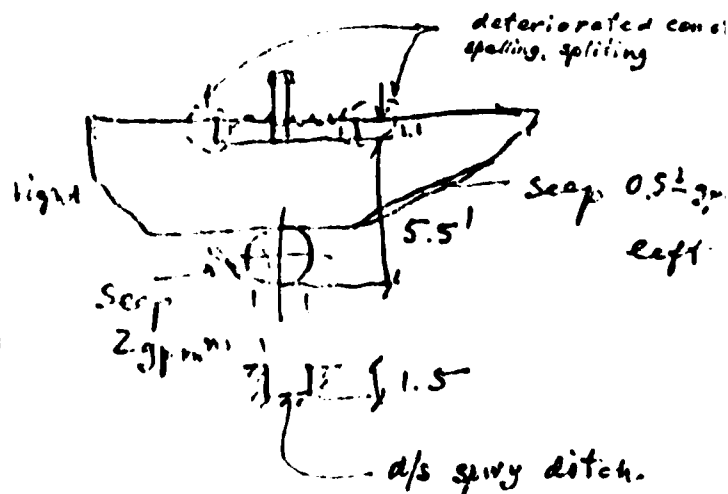 deteriorated
spalling, spliting
right
Seep 0.5±
5.5'
left
Seep
1.5
d/s spwy ditch.